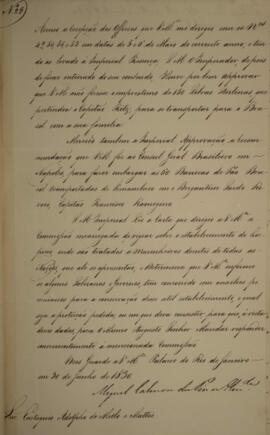 Nº 28
Accuso a recepção dos Officios que V. M.ce me dirigio em os Nos
49, 50, 51 e 52 em datas de 3 e 6 de Março do corrente anno, e ten-
do-os levado a Imperial Presença, S. M. O Imperador, depois
de ficar inteirado do seu conteudo, Houve por bem approvar
que V. M.ce não fizesse o emprestimo de 120 Libras Sterlinas que
pertendia o Capitão para se transportar para o Bra-
sil com a sua familia.
Mereceo tambem a Imperial Approvação a recom-
mendação que V. M.ce fez ao Consul Geral Brasileiro em
Napoles, para fazer embarcar as 50 Barricas de Páo Brasil
transportadas de Pernambuco em o Bergantim Sardo
Capitão Francisco
S. M. Imperial Leo a Carta que dirigio a V. M.ce a
Commissão encarregada de vigiar sobre o estabelecimento de
onde são tratados os Marinheiros doentes de todas as
Nações, que ali se apresentão, e Determina que V. M.ce informe
se alguns Soberanos e Governos, tem concorrido com auxilios pe-
cuniarios para a conservação deste util estabelecimento, e qual
seja a protecção pedida, ou em que deva consistir, para que, á vista
destes dados, possa O Mesmo Augusto Senhor Mandar responder
convenientemente á mencionada Commissão.
Deos Guarde a V. M.ce Palacio do Rio de Janeiro
em 30 de Junho de 1830.
Miguel Calmon du Pin e Almeida
Snr. Eustaquio Adolfo de Mello e Mattos